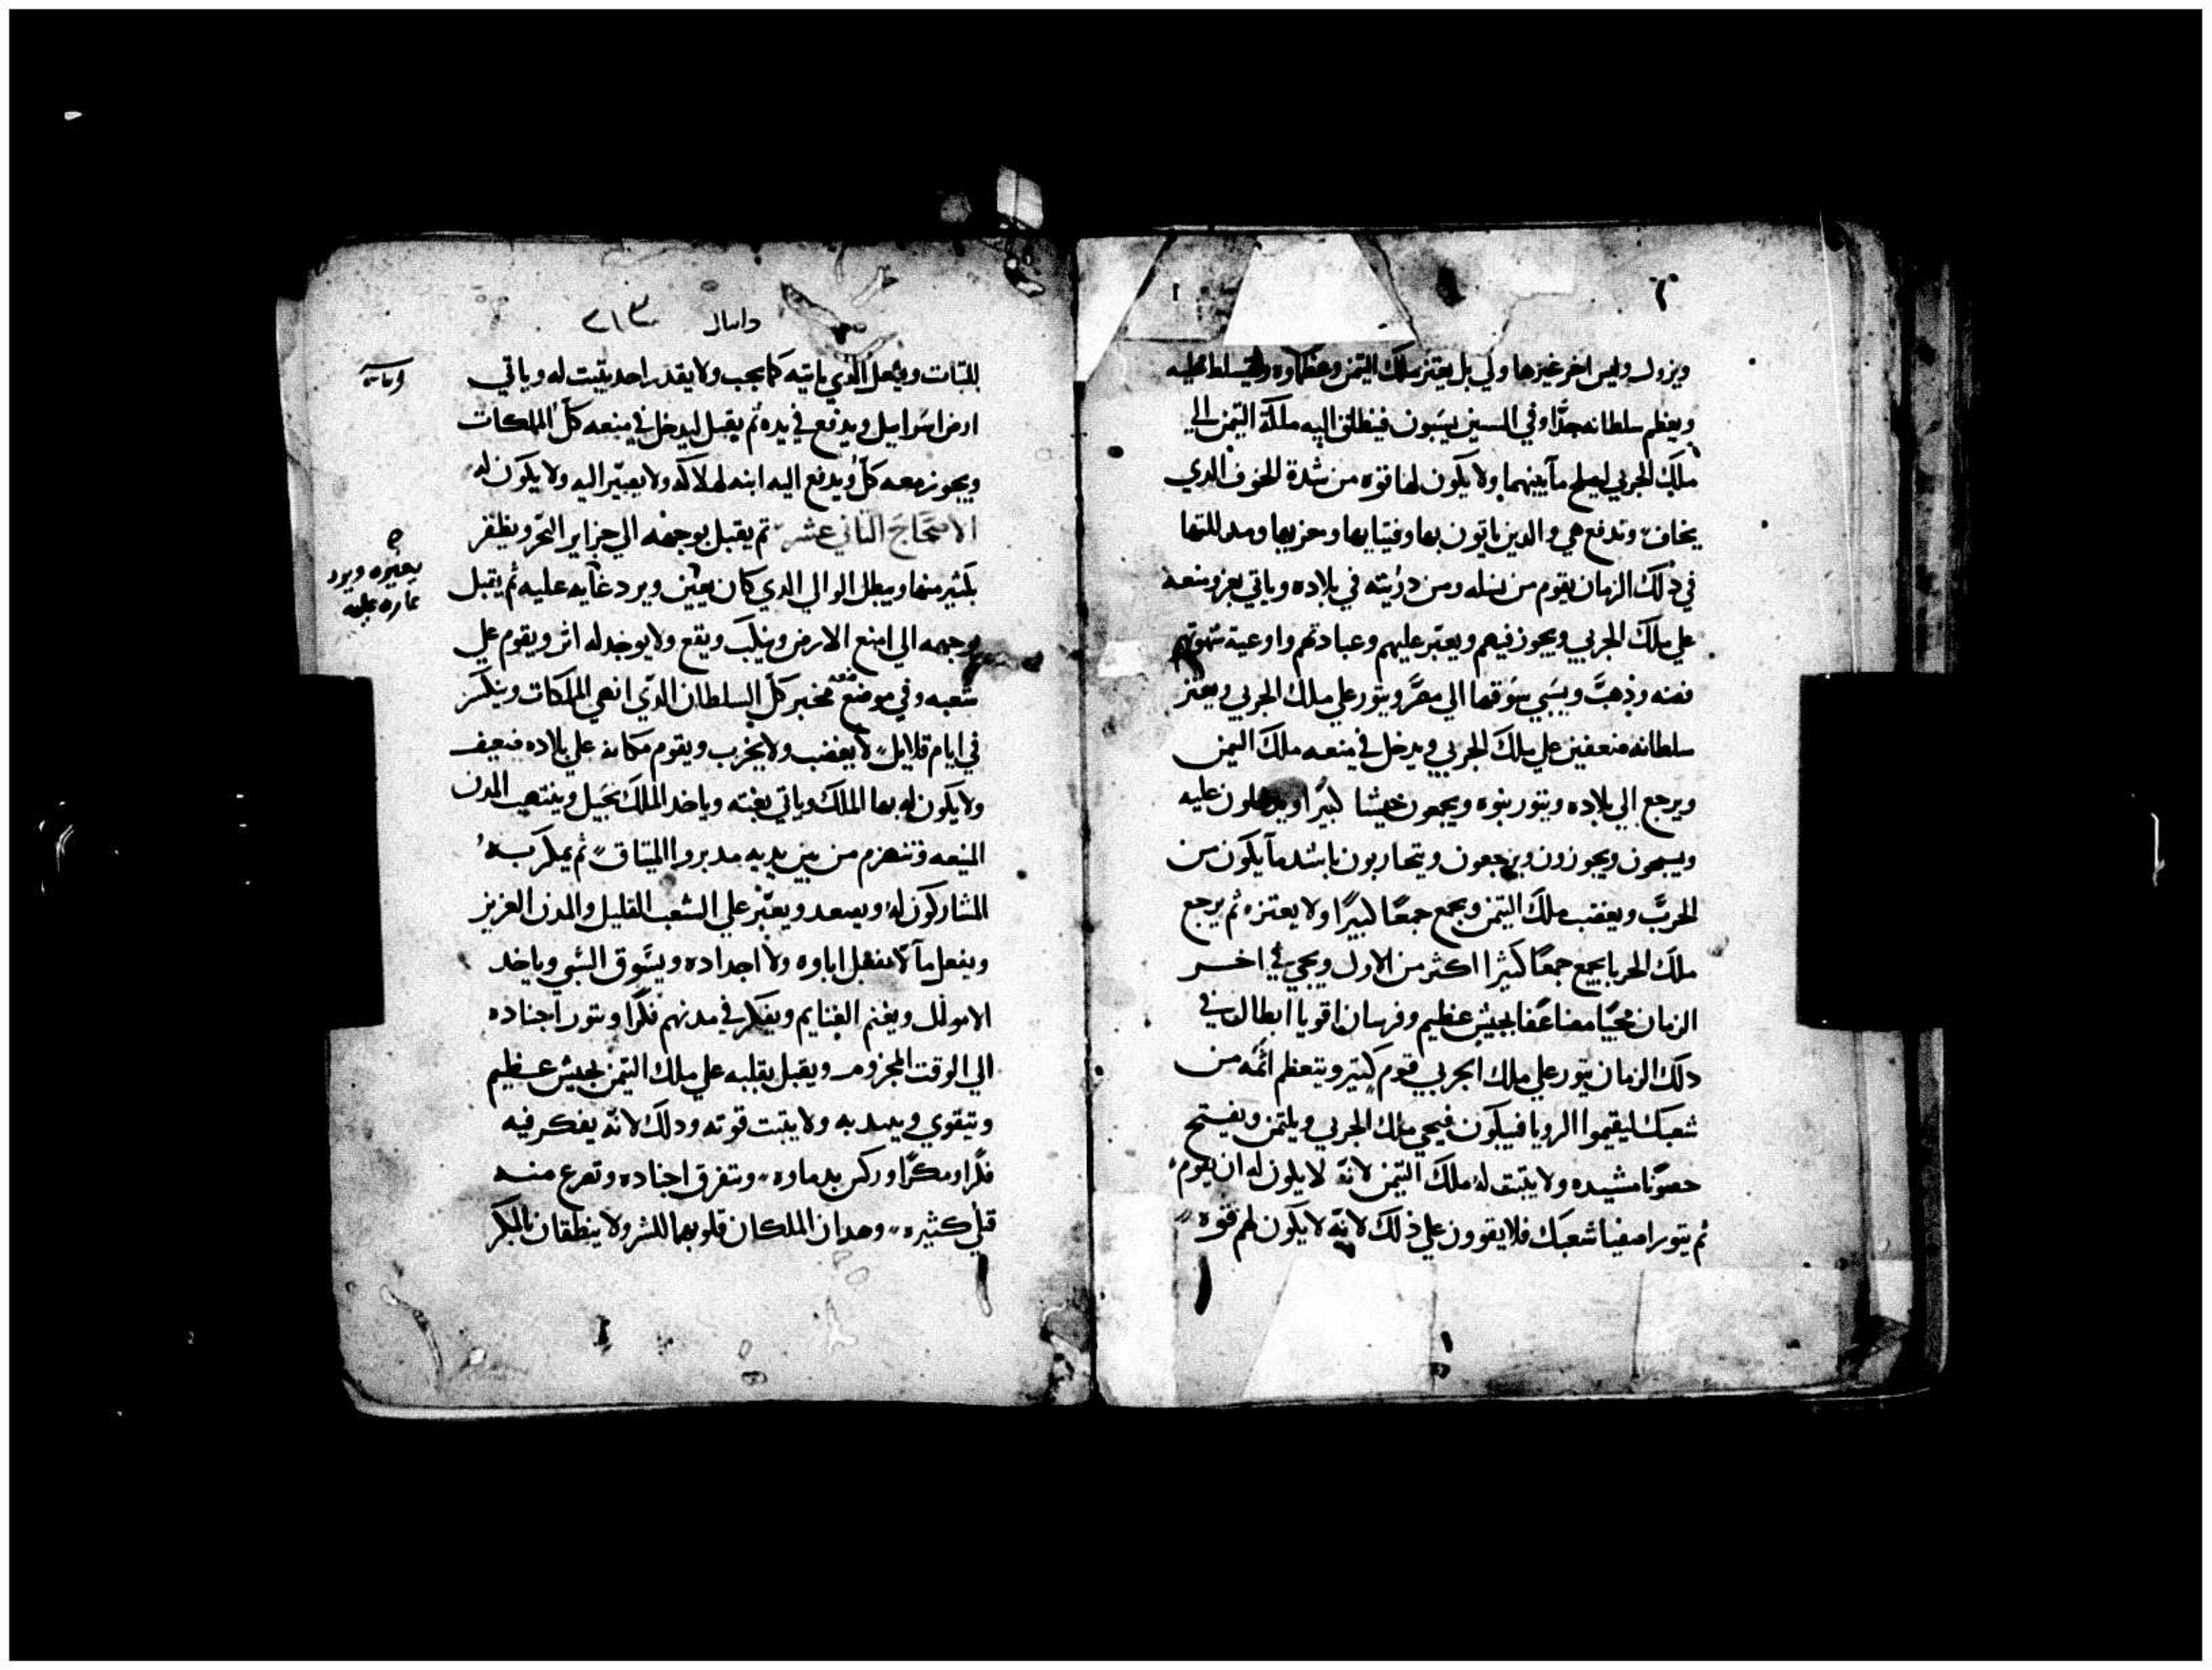 ويزول وليس اخر غيرها ولي بل يعتز ملك التيمن وعظماوه ويتسلط عليه
ويعظم سلطانه جدًّا وفي السنين يسبون فينطلق اليه ملكة التيمن الي
ملك الجربي ليصلح ما بينهما ولا يكون لها قوه من شدة الخوف الدي
يخاف وتدفع هي والدين ياتون بها وفتيايها وحزبها ومدللتها
في ذلك الزمان يقوم من نسله ومن ذريته في بلاده وياتي بعز ومنعه
علي ملك الجربي ويجوز فيهم ويعتبر عليهم وعبادتهم واوعية شهوتهم
فضه وذهب ويسبي يسوقها الي مصر ويثور علي ملك الجربي ويعتز
سلطانه ضعفين علي ملك الجربي ويدخل في منعه ملك اليمن
ويرجع الي بلاده ويثور بنوه ويجمعون جيشا كبيرًا ويدخلون عليه
ويسيحون ويجوزون ويرجعون ويتحاربون باشد ما يكون من
الحرب ويغضب ملك التيمن ويجمع جمعًا كبيرًا ولا يعتزه ثم يرجع
ملك الجربا يجمع جمعًا كثيرا اكثر من الاول ويجي في اخر
الزمان مجيًا مضاعفا بجيش عظيم وفرسان اقويا ابطال في
دلك الزمان يثور علي ملك الجربي قوم كثير ويتعظم اثمه من
شعبك ليقيموا الرويا فيبكون فيجي ملك الجربي ويلتمن ويفتتح
حصونًا مشيده ولا يثبت له ملك التيمن لانه لا يكون له ان يقوم
ثم يثور اصفيا شعبك فلا يقوون علي ذلك لانه لا يكون لهم قوه
دانيال ٢١٣
للثبات ويفعل الدي ياتيه كما يجب ولا يقدر احد يثبت له وياتي
ارض اسراييل ويدفع في يده ثم يقبل ليدخل في منعه كل الملكات
ويجوز معه كل ويدفع اليه ابنه لهلاكه ولا يعبر اليه ولا يكون له
الاصحاح الثاني عشر ثم يقبل بوجهه الي جزاير البحر ويظفر
بكثير منها ويبطل الوالي الدي كان يعين ويرد عليه ثم يقبل
بوجهه الي امنع الارض وينكب ويقع ولا يوجد له اثر ويقوم علي
شعبه وفي موضعه مخبر كل السلطان الدي انهي الملكات وينكر
في ايام قلايل لا يغضب ولا يخرب ويقوم مكانه علي بلاده ضعيف
ولا يكون له بها الملك وياتي بغته وياخد الملك بحيل وينتهب المدن
المنيعه وتنهزم من بين يديه مدبروا الميثاق ثم يمكر به
المشاركون له ويصعد ويعبر علي الشعب القليل والمدن العزيز
ويفعل ما لا يفعل اباوه ولا اجداده ويسوق السبي وياخد
الاموال ويغنم الغنايم ويفكر في مدنهم فكرًا ويثور اجناده
الي الوقت المجزوم ويقبل بقلبه علي ملك التيمن بجيش عظيم
ويتقوي به ولا يثبت قوته ودلك لانه يفكر فيه
فكرًا ومكرًا وركن بدماوه ويتفرق اجناده وتصرع منه
قتلي كثيره وهدان الملكان قلوبهما للشر ولا ينطقان بالمكر